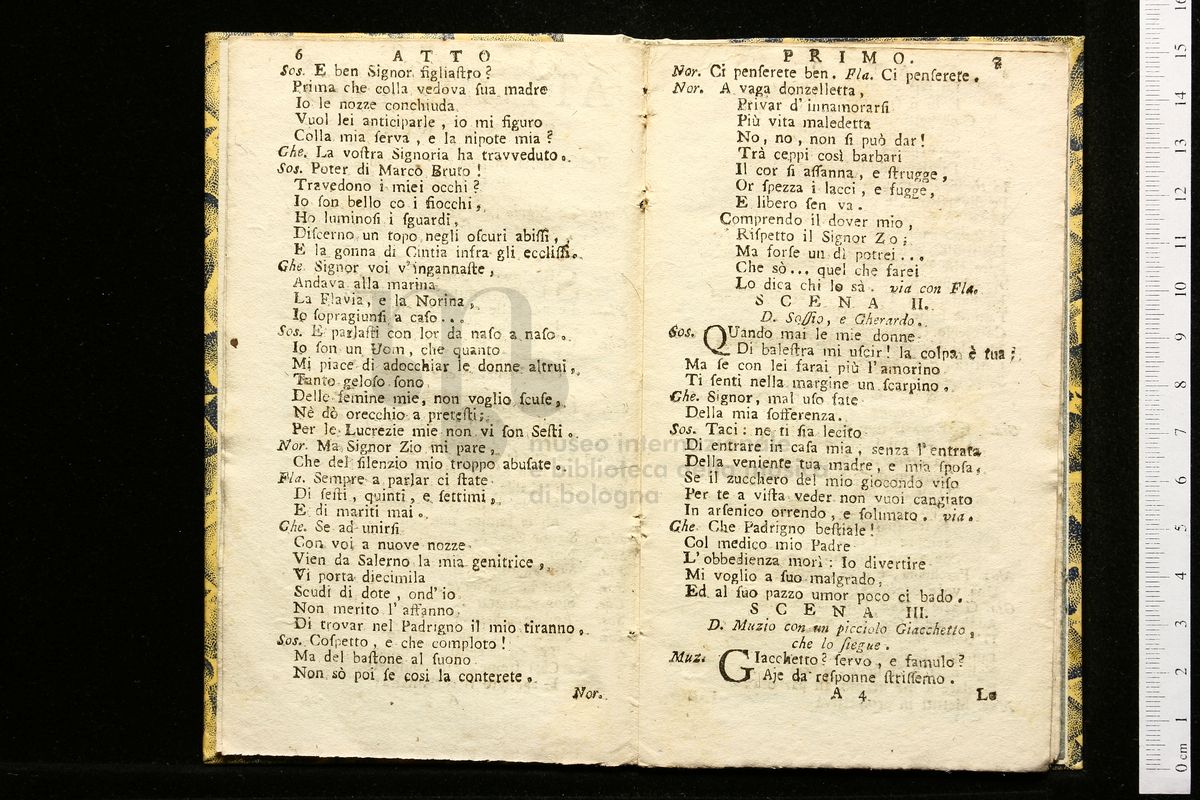 6 ATTO
Sos. E ben Signor figliaſtro?
Prima che colla vedova ſua madre
Io le nozze conchiuda
Vuol lei anticiparle, io mi figuro
Colla mia ſerva, e la nipote mia?
Ghe. La voſtra Signoria ha travveduto.
Sos. Poter di Marco Bruto!
Travedono i miei occhi?
Io ſon bello co i fiocchi,
Ho luminoſi i ſguardi,
Diſcerno un topo negli oſcuri abiſſi,
E la gonna di Cintia infra gli eccliſſi.
Ghe. Signor voi v'ingannaſte,
Andava alla marina
La Flavia, e la Norina,
Io ſopragiunſi a caſo...
Sos. E parlaſti con lor da naſo a naſo.
Io ſon un Uom, che quanto
Mi piace di adocchiar le donne altrui,
Tanto geloſo ſono
Delle femine mie, non voglio ſcuſe,
Nè dò orecchio a preteſti;
Per le Lucrezie mie non vi ſon Seſti.
Nor. Ma Signor Zio mi pare,
Che del ſilenzio mio troppo abuſate.
Fla. Sempre a parlar ci ſtate
Di ſeſti, quinti, e ſettimi,
E di mariti mai.
Ghe. Se ad unirſi
Con voi a nuove nozze
Vien da Salerno la mia genitrice,
Vi porta diecimila
Scudi di dote, ond'io
Non merito l'affanno
Di trovar nel Padrigno il mio tiranno,
Sos. Coſpetto, e che comploto!
Ma del baſtone al ſuono
Non sò poi ſe cosi la conterete.
Nor.
PRIMO. 7
Nor. Ci penſerete ben. Fla. Ci penſerete.
Nor. A vaga donzelletta,
Privar d'innamorarſi
Più vita maledetta
No, no, non ſi può dar!
Trà ceppi così barbari
Il cor ſi affanna, e ſtrugge,
Or ſpezza i lacci, e fugge,
E libero ſen va.
Comprendo il dover mio,
Riſpetto il Signor Zo;
Ma forſe un dì potrei...
Che sò... quel che farei
Lo dica chi lo sà. via con Fla.
SCENA II.
D. Soſſio, e Gherardo.
Sos. QUando mai le mie donne
Di baleſtra mi uſcir! la colpa è tua;
Ma ſe con lei farai più l'amorino
Ti ſenti nella margine un ſcarpino.
Ghe. Signor, mal uſo fate
Della mia ſofferenza.
Sos. Taci: ne ti ſia lecito
Di entrare in caſa mia, senza l'entrata
Della veniente tua madre, e mia ſpoſa,
Se il zucchero del mio giocondo viſo
Per te a viſta veder non vuoi cangiato
In arſenico orrendo, e ſolimato. via.
Ghe Che Padrigno beſtiale!
Col medico mio Padre
L'obbedienza morì: Io divertire
Mi voglio a ſuo malgrado,
Ed al ſuo pazzo umor poco ci bado.
SCENA III.
D. Muzio con un picciolo Giacchetto,
che lo ſiegue.
Muz. GIacchetto? ſervo, e famulo?
Aje da reſponne ſtriſſemo.
A 4 Le